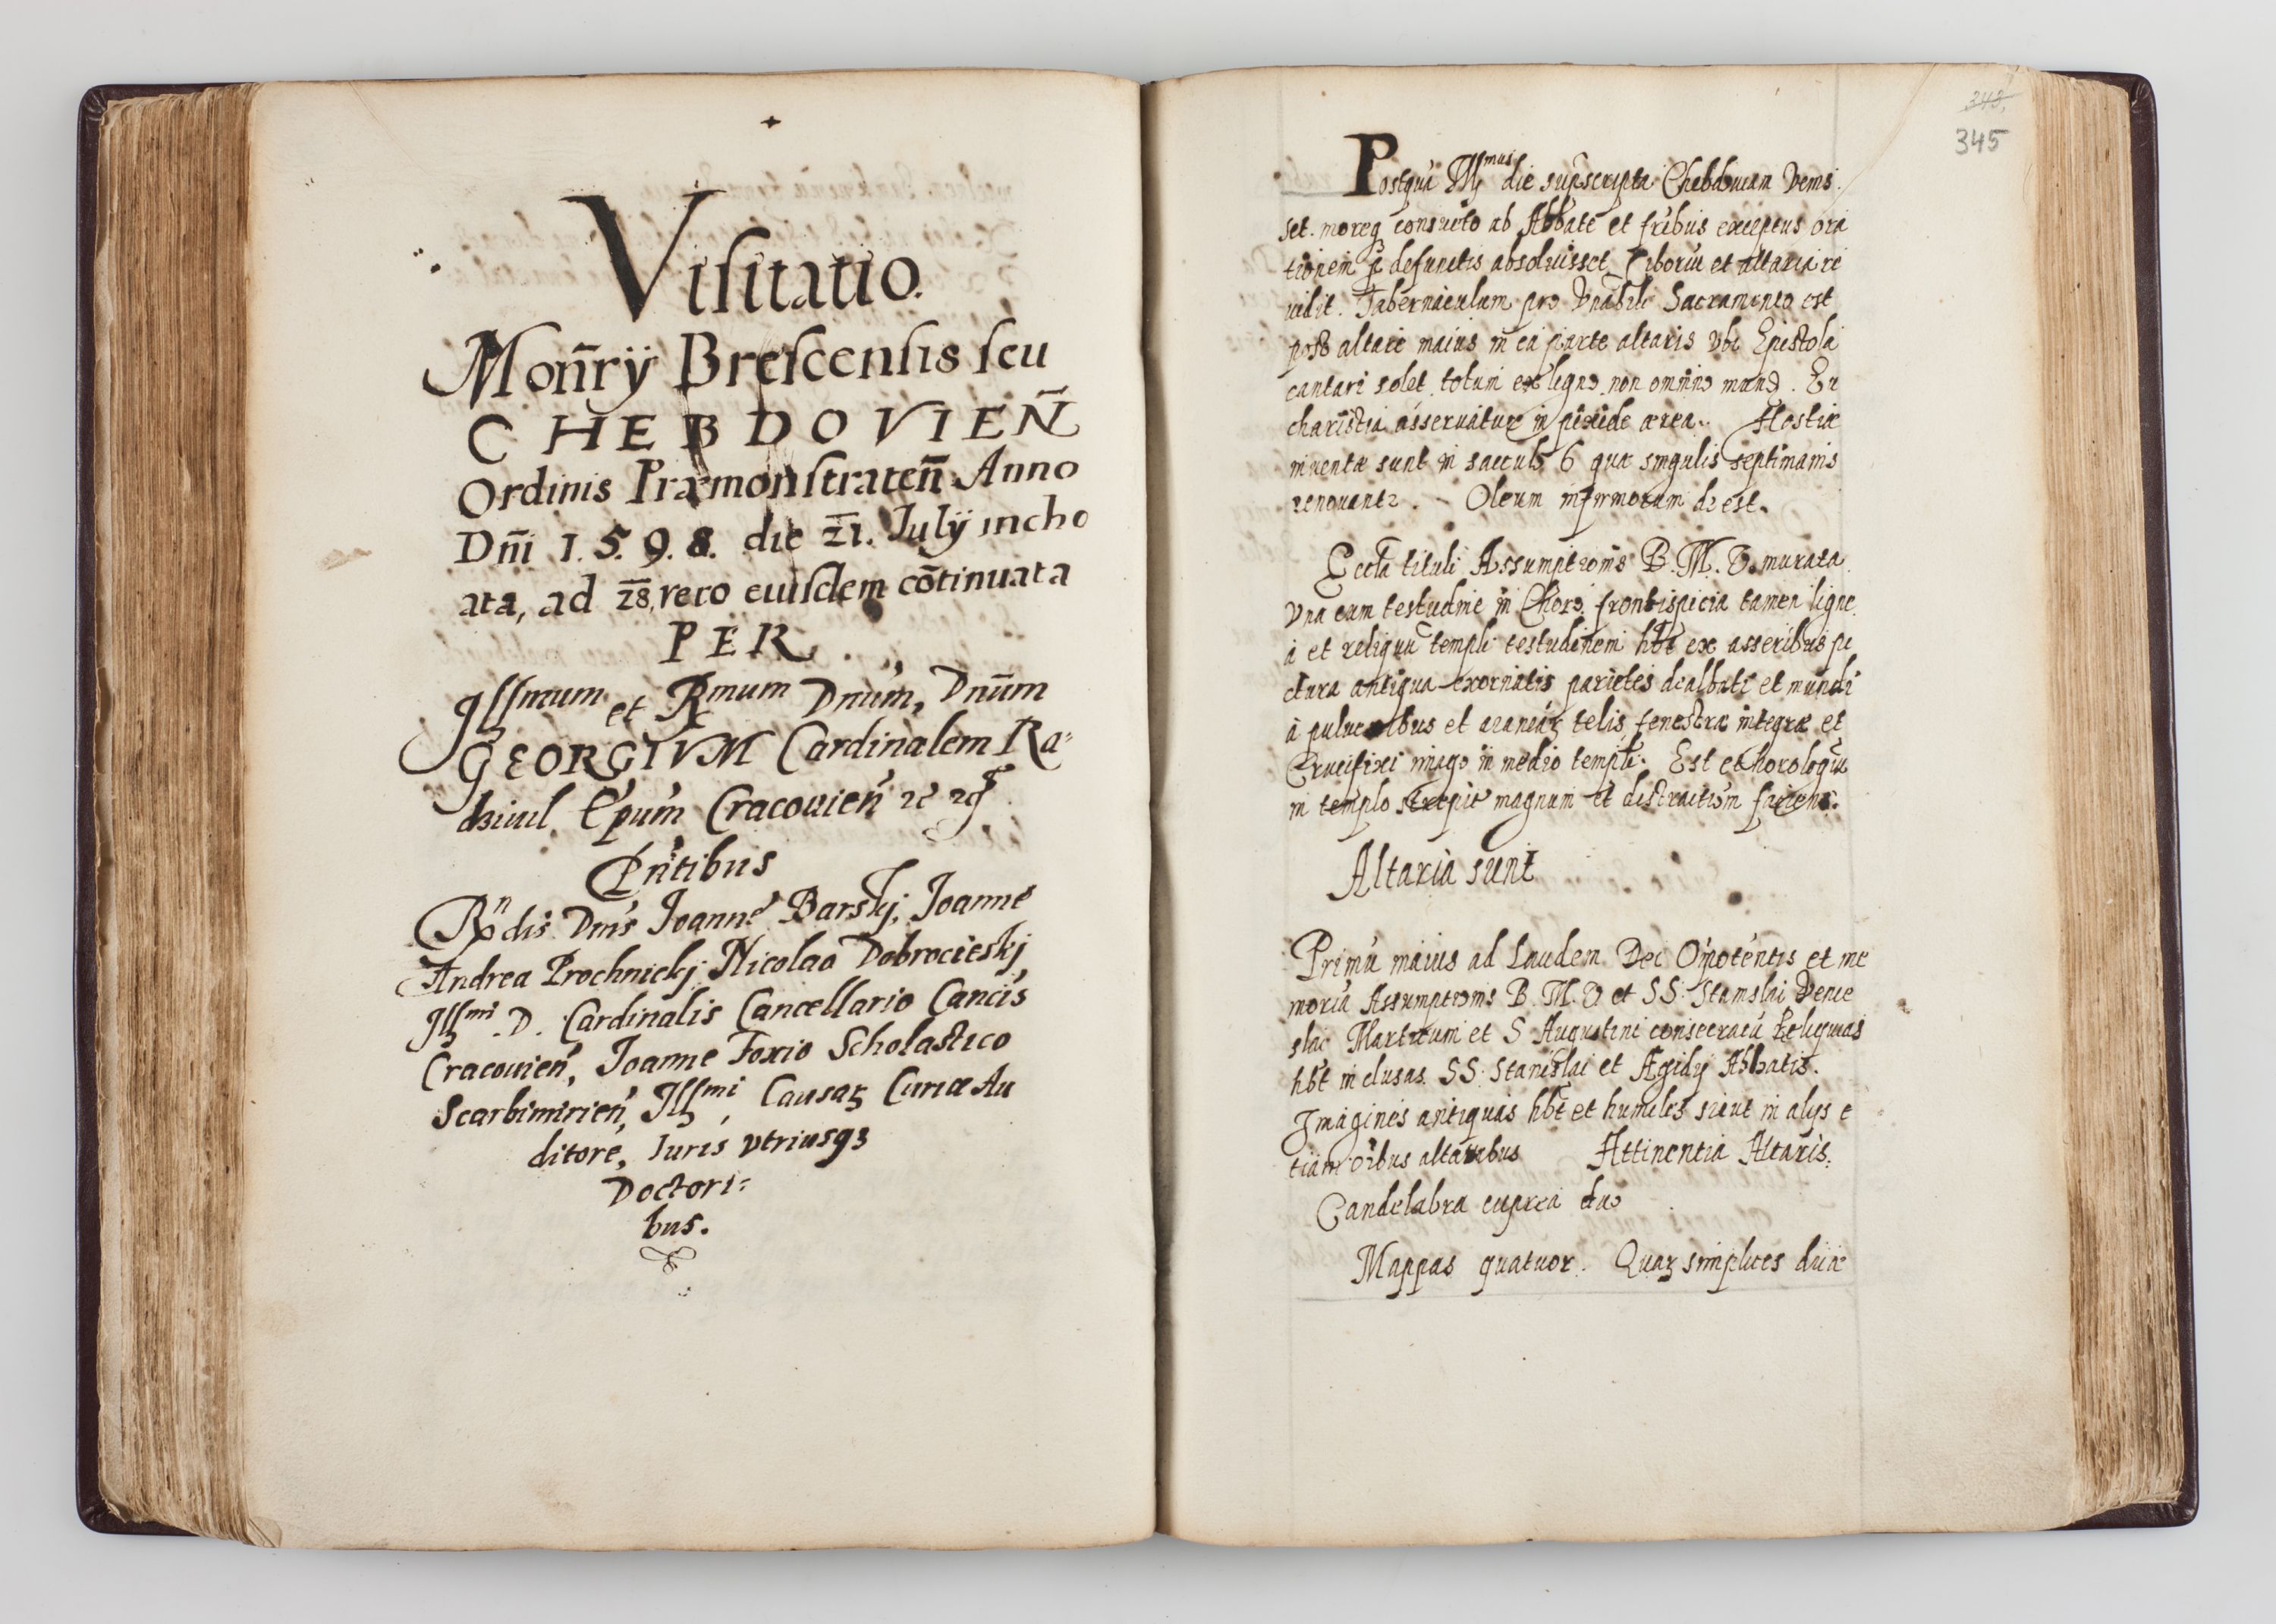 Visitatio.
Mon̄rÿ Brescensis seu
CHEBDOVIEÑ
Ordinis Præmonstraten̄ Anno
Dn̄i 1.5.9.8. die 21. Julÿ incho
ata, ad 28, vero eiusdem cōtinuata
PER
Illmum et Rmum Dnūm, Dnūm
GEORGIVM Cardinalem Ra-
dziuil Epūm Cracouien̄
Pn̄tibus
Rndis Dnis Joanne Barskj, Joanne
Andrea Prochnickj Nicolao Dobrocieskj
Illmi D. Cardinalis Cancellario Cancis
Cracouien̄, Joanne Foxio Scholastico
Scarbimirien̄, Illmi Causaꝝ Curiæ Au
ditore, Iuris vtriusqꝫ
Doctori-
bus.
343,
345
Postquā Illmus die sup̄scripta Chebdouiam venis
set. moreqꝫ consueto ab Abbate et fr̄ibus exceptus ora
tionem ꝓ defunctis absoluisset Ciboriū et altaria re
uidit. Tabernaculum pro Vnābili Sacramento est
post altare maius in ea parte altaris vbi Epistola
cantari solet totum ex ligno non omnino mund. Eu
charistia asseruatur in pixide ærea. Hostiæ
inuentæ sunt in sacculo 6 quæ singulis septimanis
renouantr. Oleum infirmorum deest.
Eccla tituli Assumptionis B. M. V. murata
vna cum testudine in Choro, frontispicia tamen ligne
a et reliquū templi testudinem hb̄t ex asseribus pi
ctura antiqua exornatis parietes dealbati et mundi
à pulueribus et araneaꝝ telis, fenestræ integræ et
Crucifixi imago in medio templi. Est et horologiū
in templo strepitū magnum et distractiōm faciens.
Altaria sunt
Primū maius ad Laudem Dei Omp̄otentis et me
moriā Assumptionis B. M. V et SS. Stanislai Vence
slai Martirum et S Augustini consecratū Reliquias
hb̄t inclusas SS. Stanislai et Ægidÿ Abbatis.
Imagines antiquas hb̄t et humiles sicut in alÿs e
tiam oībus altaribus Attinentia Altaris.
Candelabra cuprea duo
Mappas quatuor. Quaꝝ simplices duæ